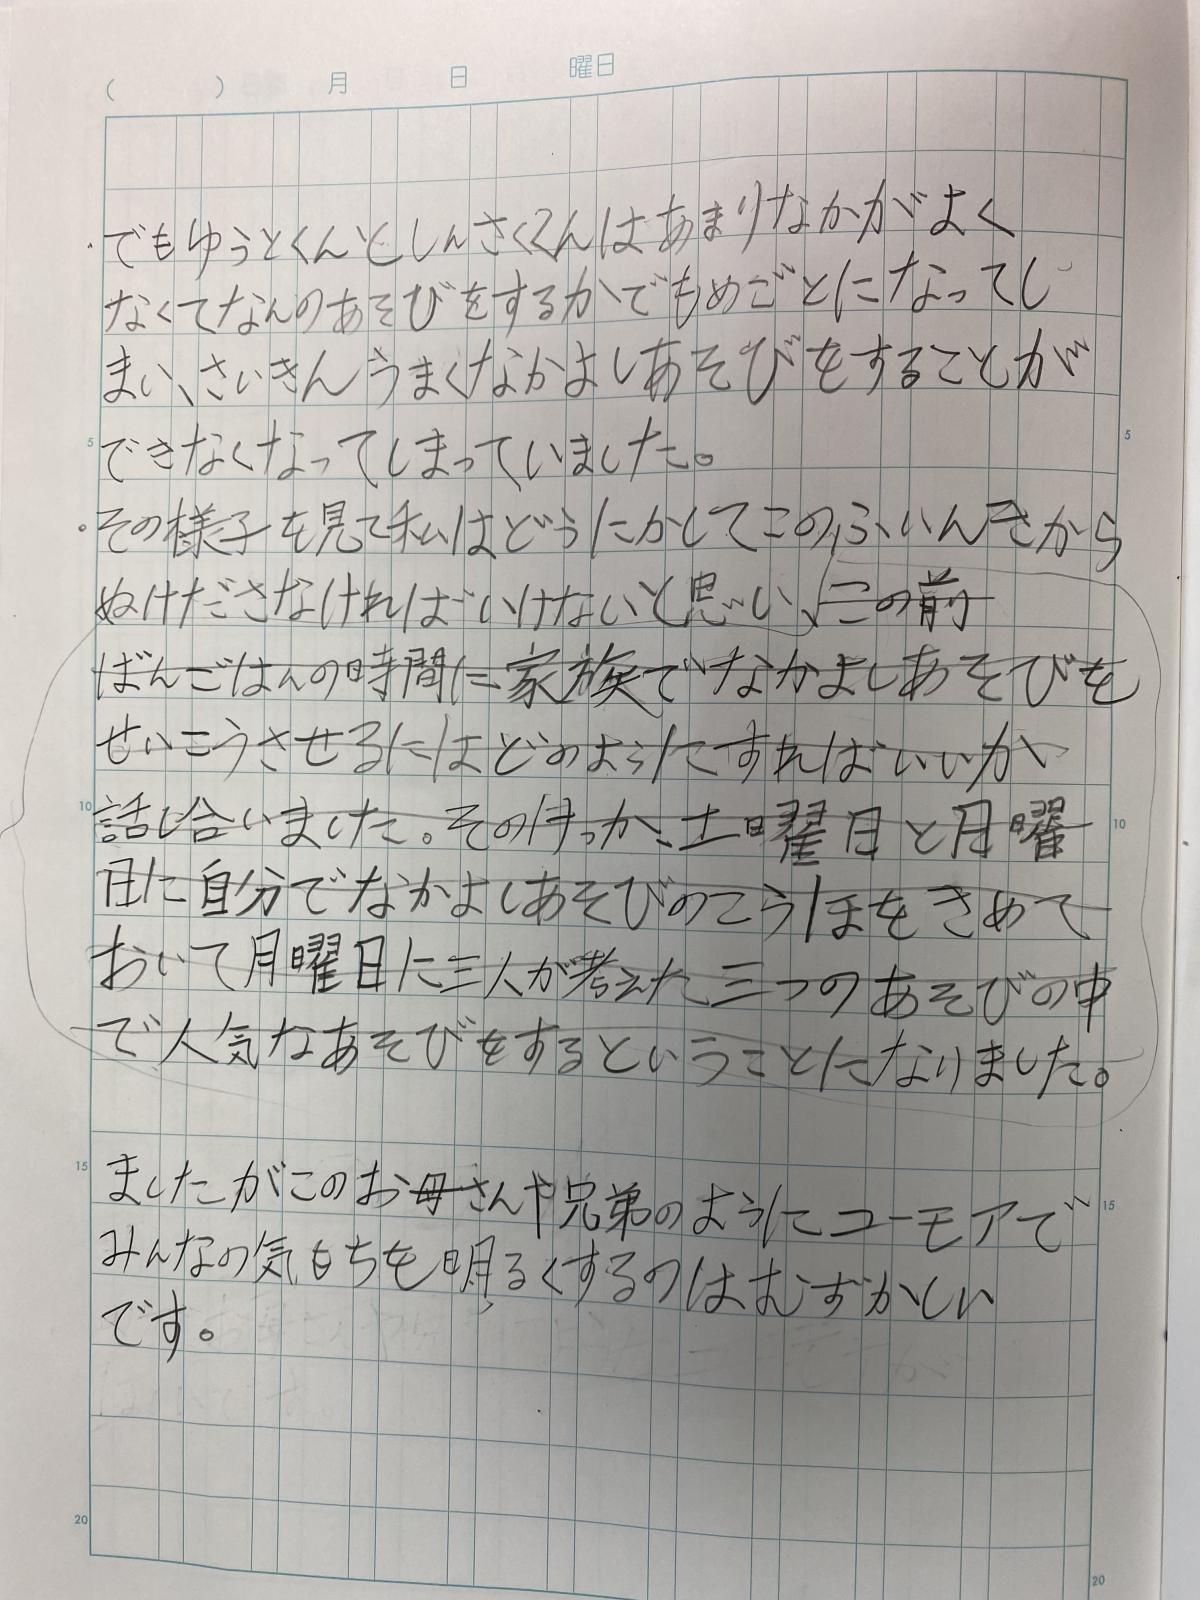 ( ) 月 日 曜日
でもゆうとくんとしんさくくんはあまりなかがよく
なくてなんのあそびをするかでもめごとになってし
まい、さいきんうまくなかよしあそびをすることが
できなくなってしまっていました。
5 5
その様子を見て私はどうにかしてこのふいんきから
ぬけださなければいけないと思い この前
ばんごはんの時間に家族でなかよしあそびを
せいこうさせるにはどのようにすればいいか
話し合いました。そのけっか、土曜日と月曜
10 10
日に自分でなかよしあそびのこうほをきめて
おいて月曜日に三人が考えた三つのあそびの中
で人気なあそびをするということになりました。
ましたがこのお母さんや兄弟のようにユーモアで
15 15
みんなの気もちも明るくするのはむずかしい
です。
20 20